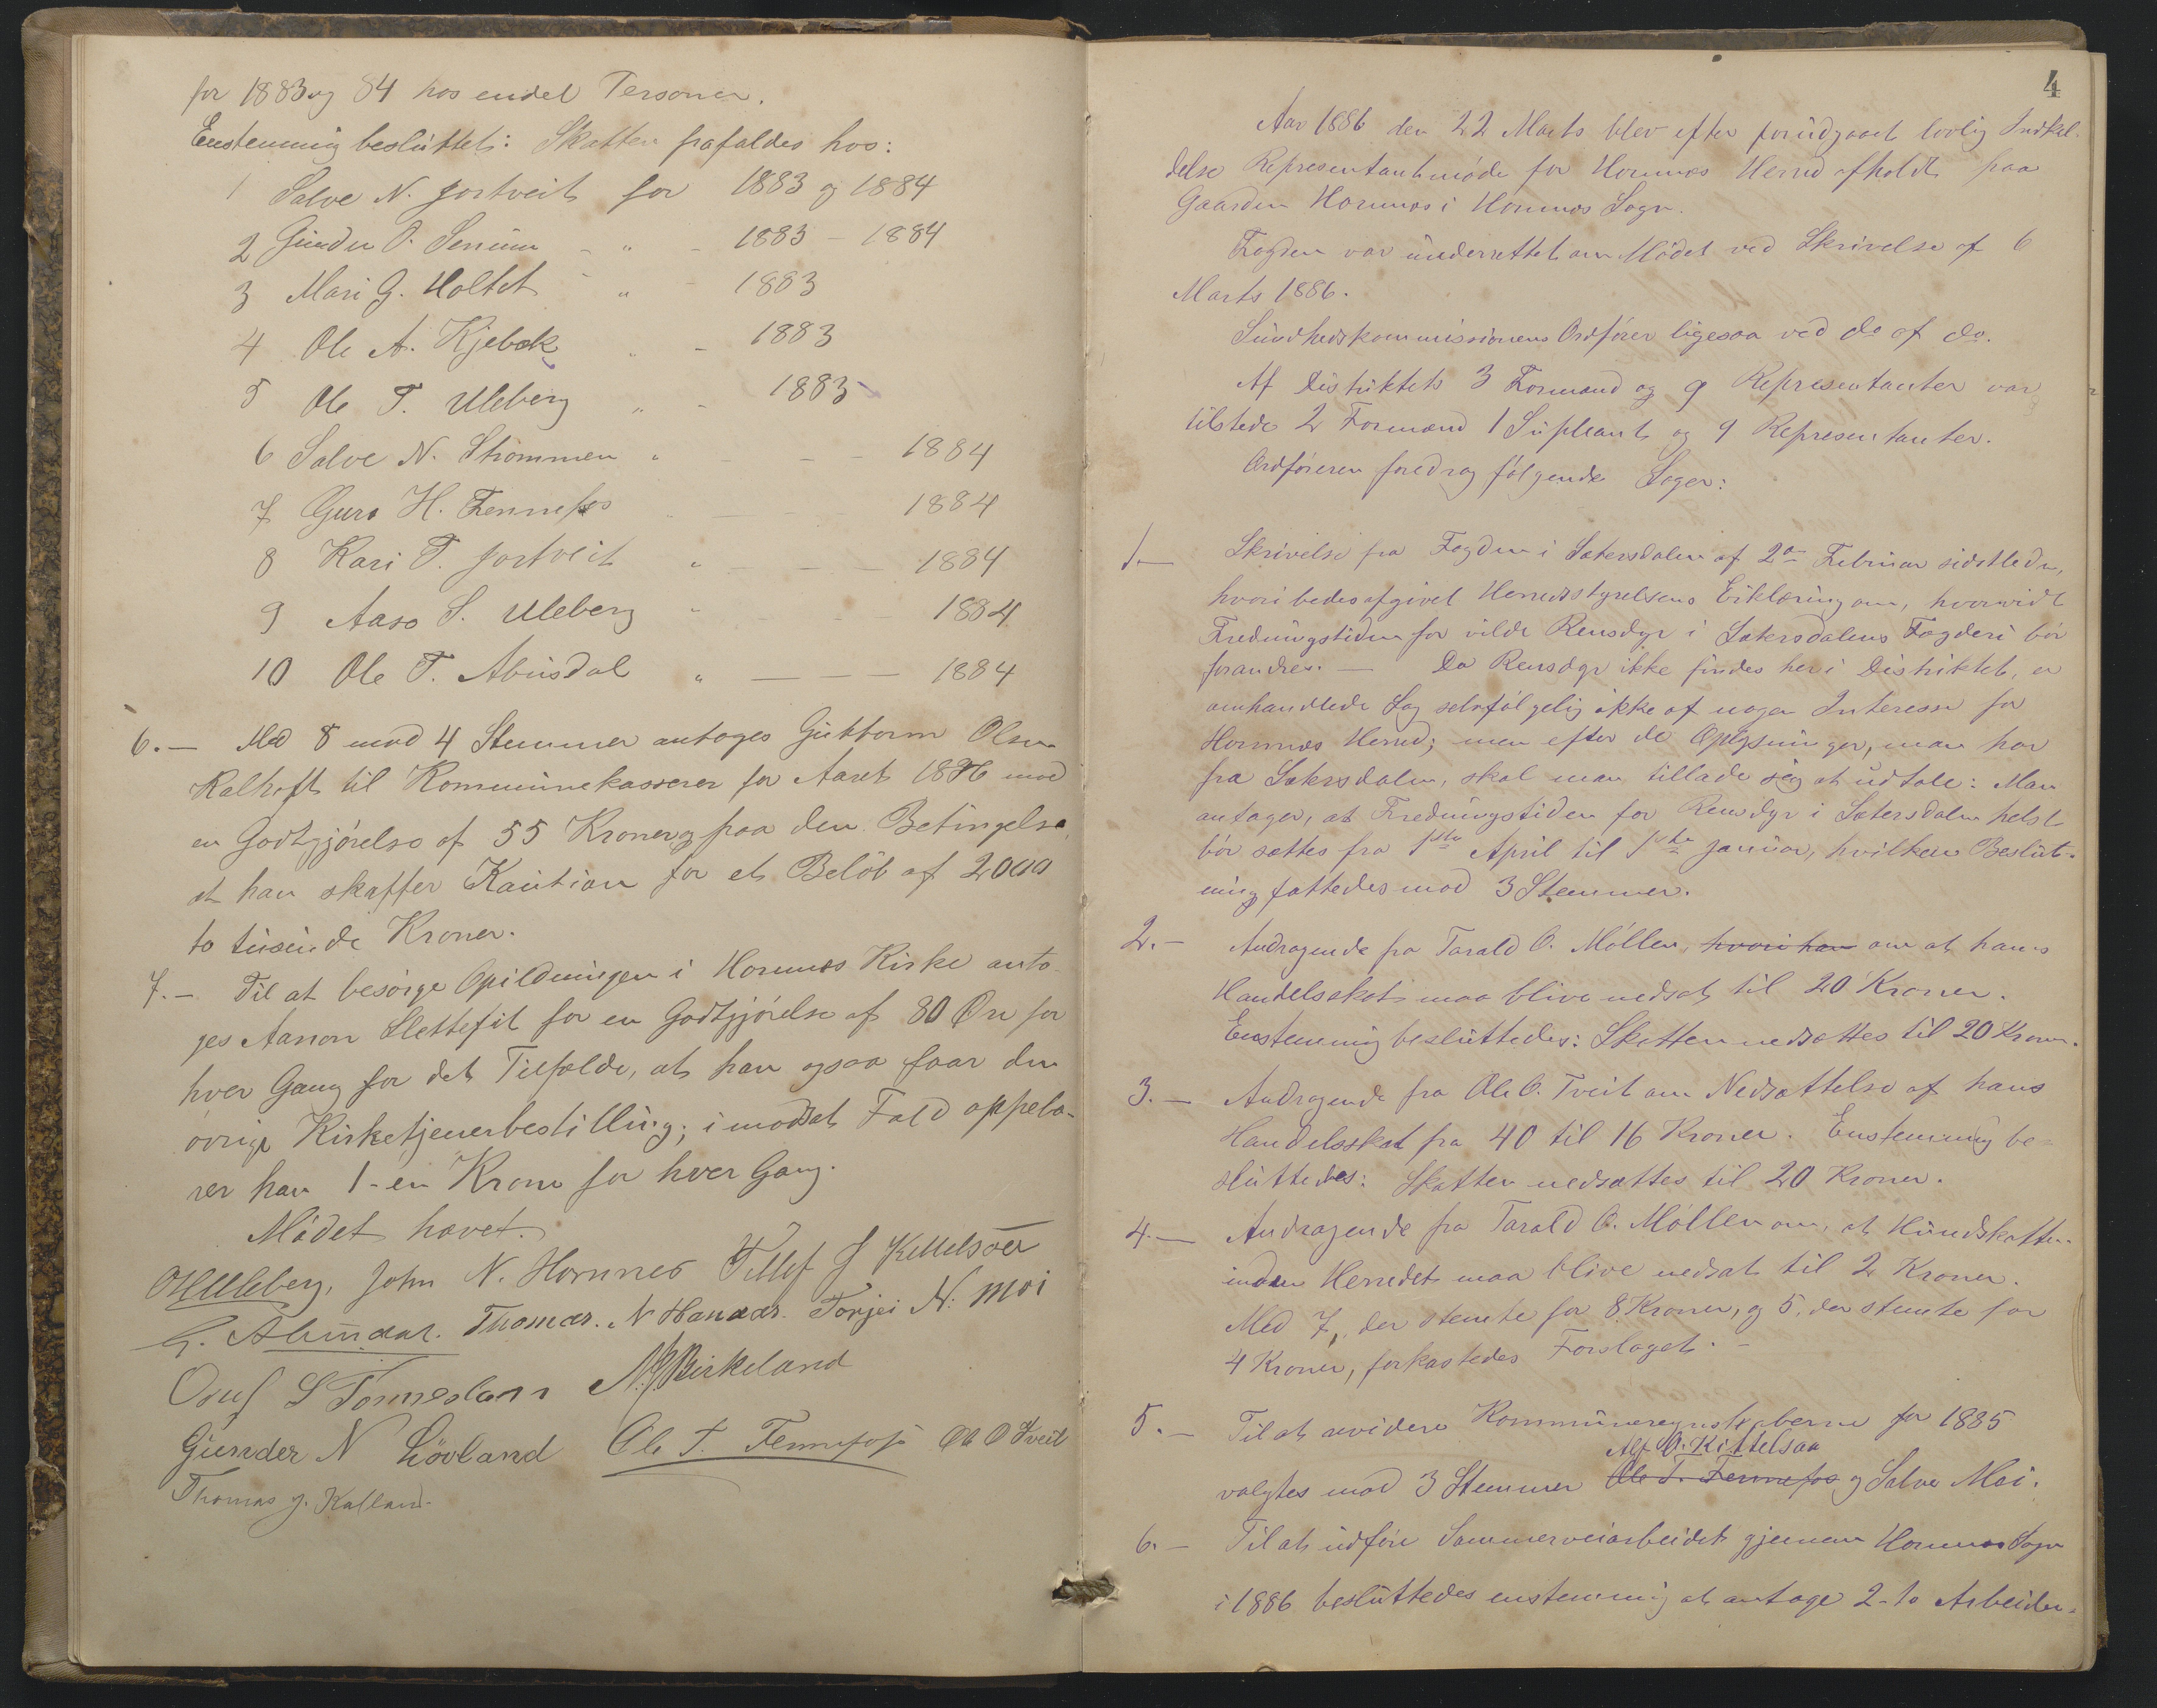 for 1883 og 84 hos endel Personer.
Enstemmig besluttet: Skatten frafaldes hos:
1 Salve N. Fortveit for 1883 og 1884
2 Gunder O. Senum - " - 1883 - 1884
3 Mari G. Holtet - " - 1883
4 Ole A. Kjebæk " - 1883
5 Ole T. Uleberg " - 1883
6 Salve N. Strømmen " - - - 1884
7 Guro H. Fennefos - - - 1884
8 Kari T. Fortveit " - - - 1884
9 Aaso S. Uleberg " - - - 1884
10 Ole T. Abusdal " - - - 1884
6. - Med 8 mod 4 Stemmer antoges Guttorm Olsen
Kalhoft til Kommunekasserer for Aaret 1886 mod
en Godtgjørelse af 55 Kroner og paa den Betingelse,
at han skaffer Kaution for et Beløb af 2000
to tusinde Kroner.
7. - Til at besørge Opildningen i Hornnes Kirke anto-
ges Aanon Slettefit for en Godtgjørelse af 80 Øre for
hver Gang for det Tilfælde, at han ogsaa faar den
øvrige Kirketjenerbestilling; i modsat Fald oppebæ-
rer han 1 - en Krone for hver Gang.
Mødet hævet.
OHUleberg, John N. Hornnes Tellef J Kettelsaa
G. Abusdal. Thomas. N Hanaas. Torjei N: Moi
Osuf S Fønnesland N. J. Birkeland
Gunder N Løvland Ole T. Fennefos Ole O Tveit
Thomas J. Kalland.
4
Aar 1886 den 22 Marts blev efter forudgaaet lovlig Indkal-
delse Representantmøde for Hornnes Herred afholdt paa
Gaarden Hornnes i Hornnes Sogn.
Fogden var underrettet om Mødet ved Skrivelse af 6
Marts 1886.
Sundhedskommissionens Ordfører ligesaa ved do af do.
Af Distriktets 3 Formænd og 9 Representanter var
tilstede 2 Formænd 1 Supleant og 9 Representanter.
Ordføreren foredrog følgende Sager:
1. - Skrivelse fra Fogden i Sætersdalen af 2den Februar sidstleden,
hvori bedes afgivet Herredsstyrelsens Erklæring om, hvorvidt
Fredningstiden for vilde Rensdyr i Sætersdalens Fogderi bør
forandres. - Da Rensdyr ikke findes her i Distriktet, er
omhandlede Sag selvfølgelig ikke af nogen Interesse for
Hornnes Herred; men efter de Oplysninger, man har
fra Sætersdalen, skal man tillade sig at udtale: Man
antager, at Fredningstiden for Rensdyr i Sætersdalen helst
bør sættes fra 1ste April til 1ste Januar, hvilken Beslut-
ning fattedes mod 3 Stemmer.
2. - Andragende fra Tarald O. Møllen, hvori han om at hans
Handelsskat maa blive nedsat til 20 Kroner.
Enstemmig besluttedes: Skatten nedsættes til 20 Kroner.
3. - Andragende fra Ole O. Tveit om Nedsættelse af hans
Handelsskat fra 40 til 16 Kroner. Enstemmig be-
sluttedes: Skatten nedsættes til 20 Kroner.
4. - Andragende fra Tarald O. Møllen om, at Hundskatten
inden Herredet maa blive nedsat til 2 Kroner.
Med 7, der stemte for 8 Kroner, og 5, der stemte for
4 Kroner, forkastedes Forslaget. -
5. - Til at revidere Kommuneregnskaberne for 1885
Alf O. Kittelsaa
valgtes mod 3 Stemmer Ole T. Fennefos og Salve Moi.
6. - Til at udføre Sommerveiarbeidet gjennem Hornnes Sogn
i 1886 besluttedes enstemmig at antage 2 - to Arbeider-